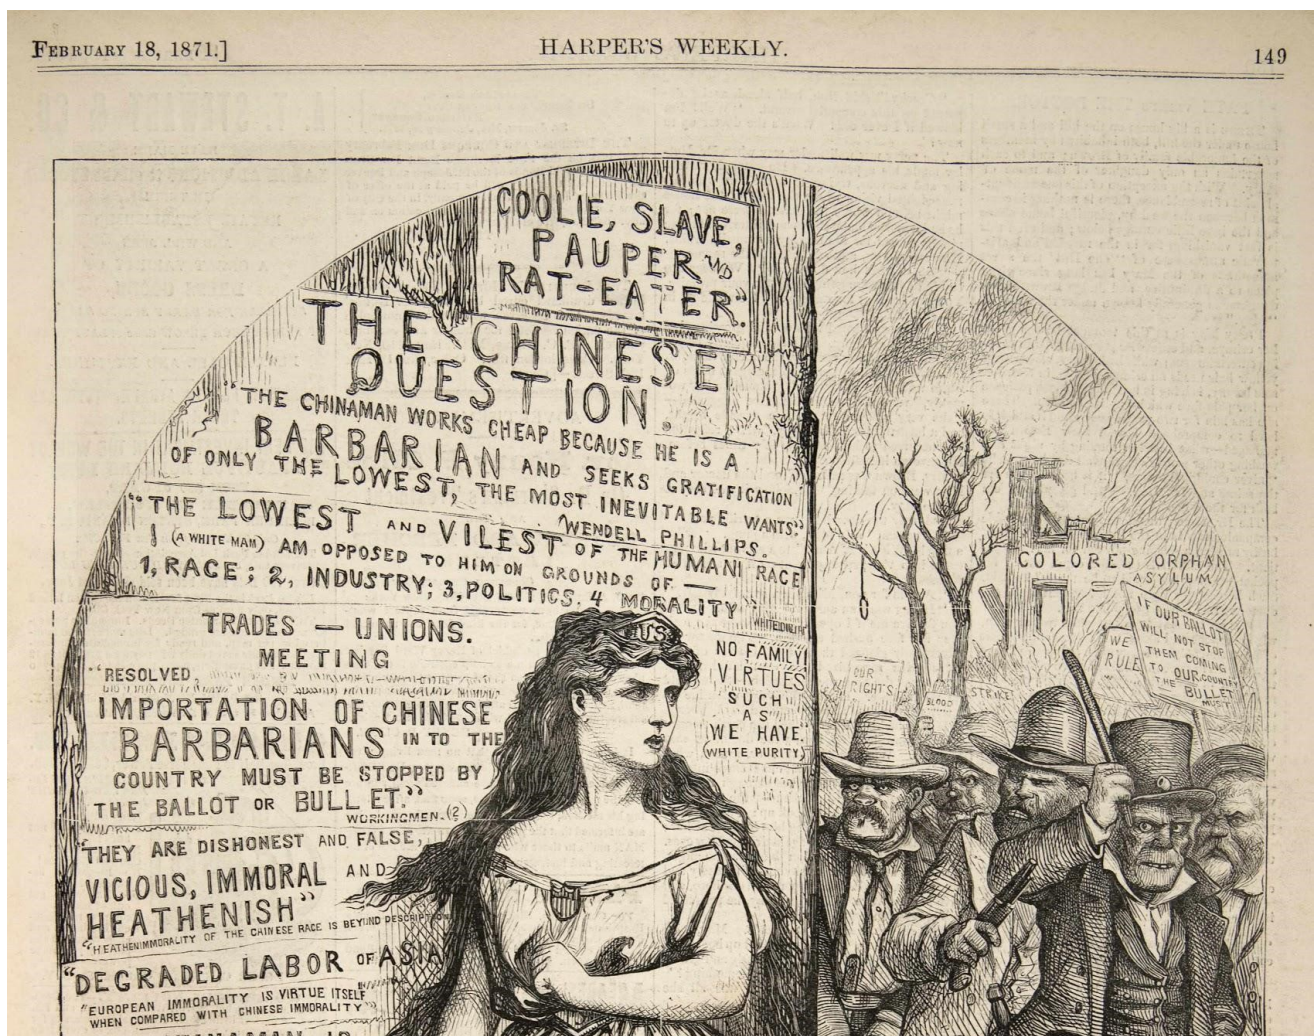 FEBRUARY 18, 1871.]
HARPER'S WEEKLY.
149
COOLIE, SLAVE,
PAUPER AND
RAT-EATER."
THE CHINESE
QUESTION.
"THE CHINAMAN WORKS CHEAP BECAUSE HE IS A
BARBARIAN AND SEEKS GRATIFICATION
OF ONLY THE LOWEST, THE MOST INEVITABLE WANTS."
WENDELL PHILLIPS.
"THE LOWEST AND VILEST OF THE HUMAN RACE
I (A WHITE MAM) AM OPPOSED TO HIM ON GROUNDS OF —
1, RACE; 2, INDUSTRY; 3, POLITICS. 4 MORALITY"
TRADES — UNIONS.
MEETING
"RESOLVED,
IMPORTATION OF CHINESE
BARBARIANS IN TO THE
COUNTRY MUST BE STOPPED BY
THE BALLOT OR BULLET."
WORKINGMEN.(?)
"THEY ARE DISHONEST AND FALSE,
VICIOUS, IMMORAL AND
HEATHENISH"
"HEATHEN IMMORALITY OF THE CHINESE RACE IS BEYUND DESCRIPTION
"DEGRADED LABOR OF ASIA
"EUROPEAN IMMORALITY IS VIRTUE ITSELF
WHEN COMPARED WITH CHINESE IMMORALITY"
U.S.
NO FAMILY
VIRTUES
SUCH
AS
WE HAVE.
(WHITE PURITY)
COLORED ORPHAN
ASYLUM
IF OUR BALLOT
WILL NOT STOP
THEM COMING
TO OUR COUNTRY
THE BULLET
MUST
WE
RULE
OUR
RIGHTS
BLOOD
STRIKE